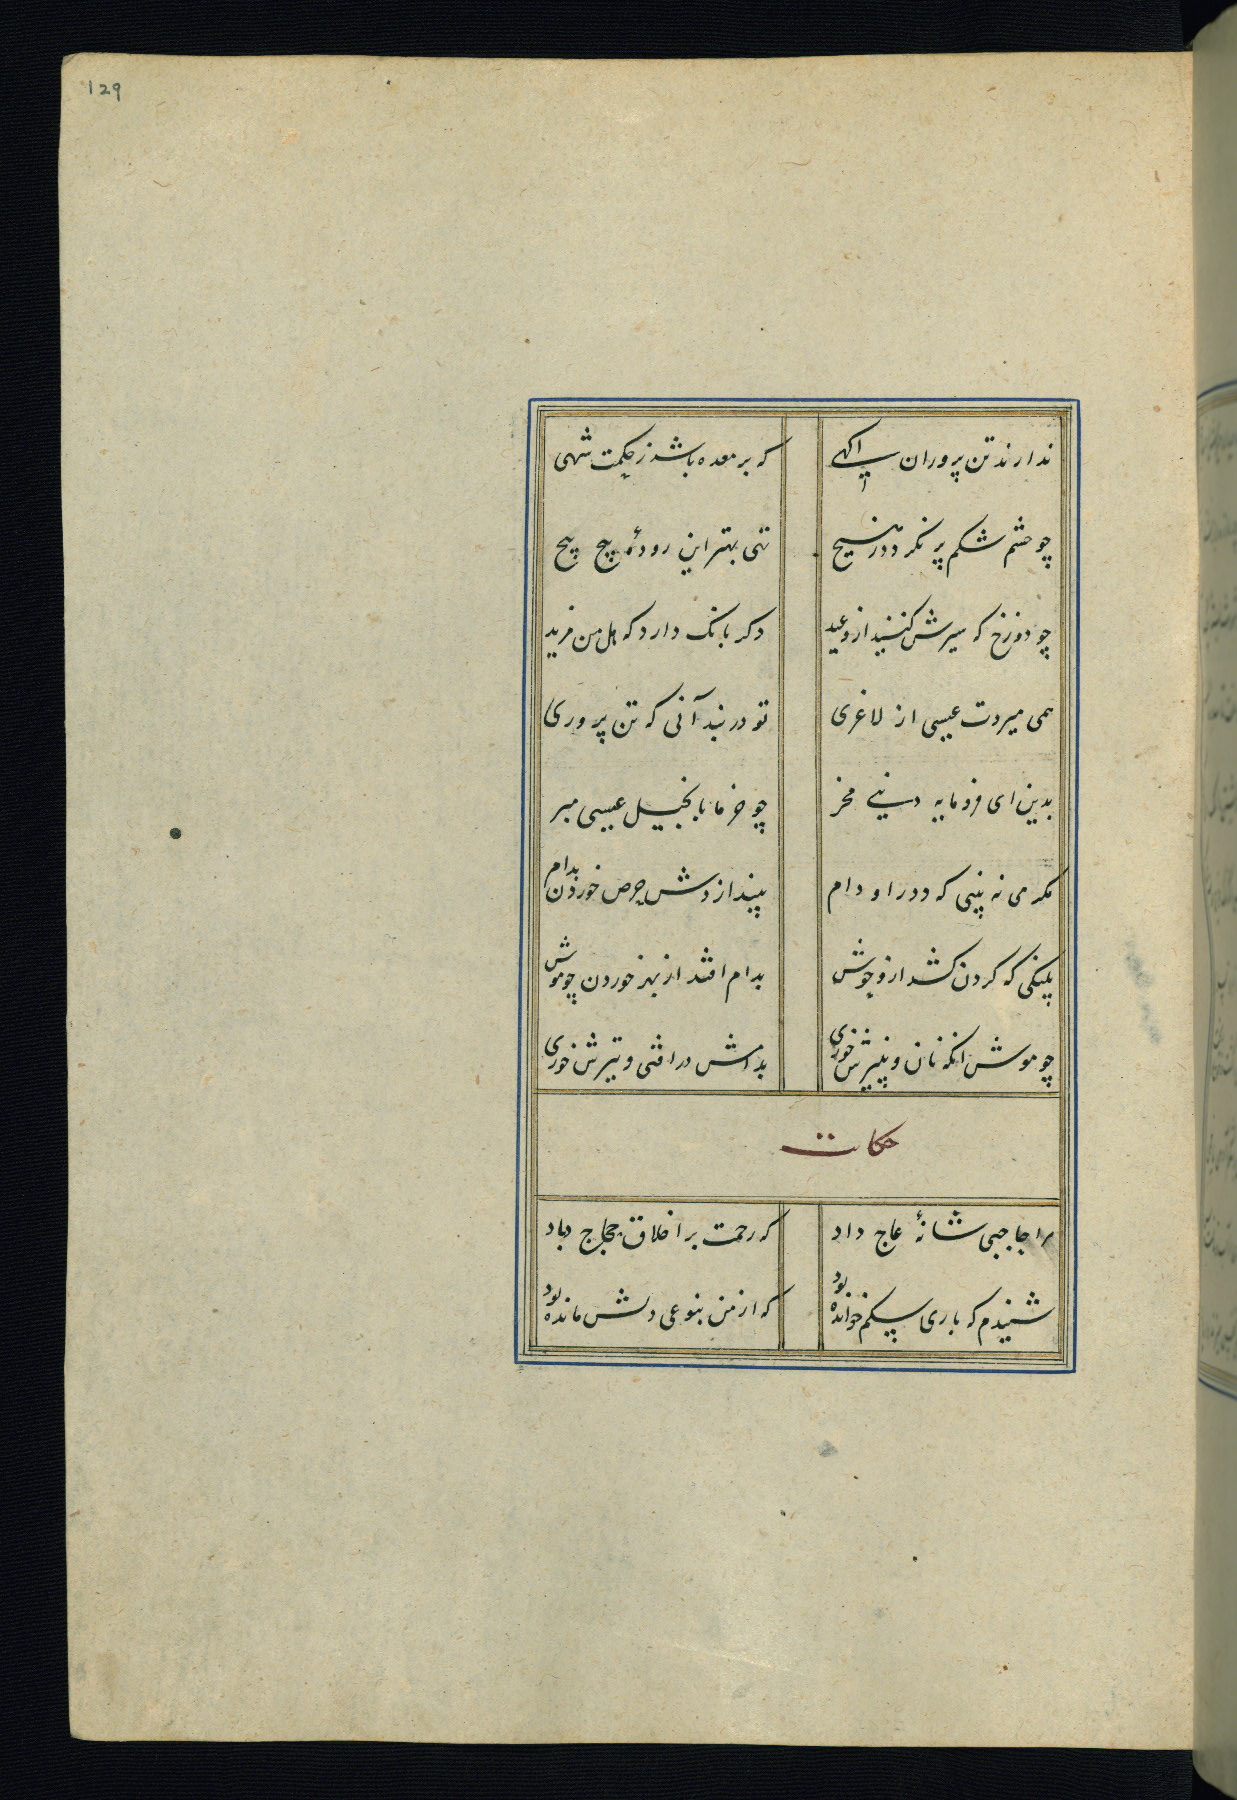 129
ندارند تن پروران آکهی که بر معده باشد ز حکمت تهی
چو چشم شکم پر نکردد ز هیچ تهی بهتر این رودهٔ پیچ پیچ
چو دوزخ که سیرش کنند از وعید دکر بانک دارد که هل من مزید
همی میردت عیسی از لاغری تو در بند آنی که تن پروری
بدین ای فرومایه دنیی مخر چو خر ما بانجیل عیسی مبر
مکر می نه بینی که دد را و دام بینداز دش حرص خوردن بدام
پلنکی که کردن کشد از وحوش بدام افتد از بهر خوردن چو موش
چو موش انکه نان و پنیرش خوری بدامش در افتی و تیرش خوری
حکایت
مرا حاجبی شانهٔ عاج داد که رحمت بر اخلاق حجاج باد
شنیدم که باری سکم خوانده بود که از من بنوعی دلش مانده بود